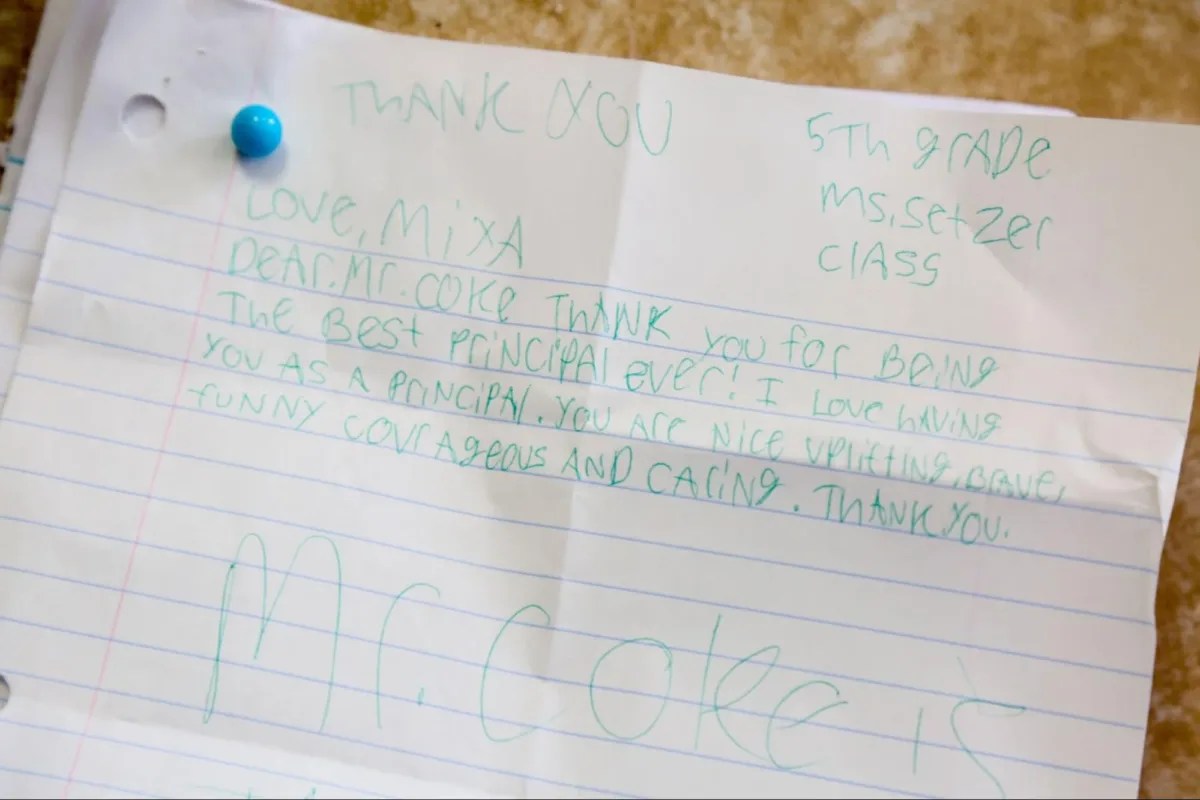 THANK YOU
5Th grADe
Ms. Setzer
ClASS
Love, MiXA
DeAr. Mr. COKe ThANK you for BeiNg
The Best PriNCiPAl ever! I Love hAViNg
you AS A PriNCiPAl. you Are Nice upliftiNg, BrAve,
fuNNy courAgeous AND CAriNg. ThANK you.
Mr. Coke is